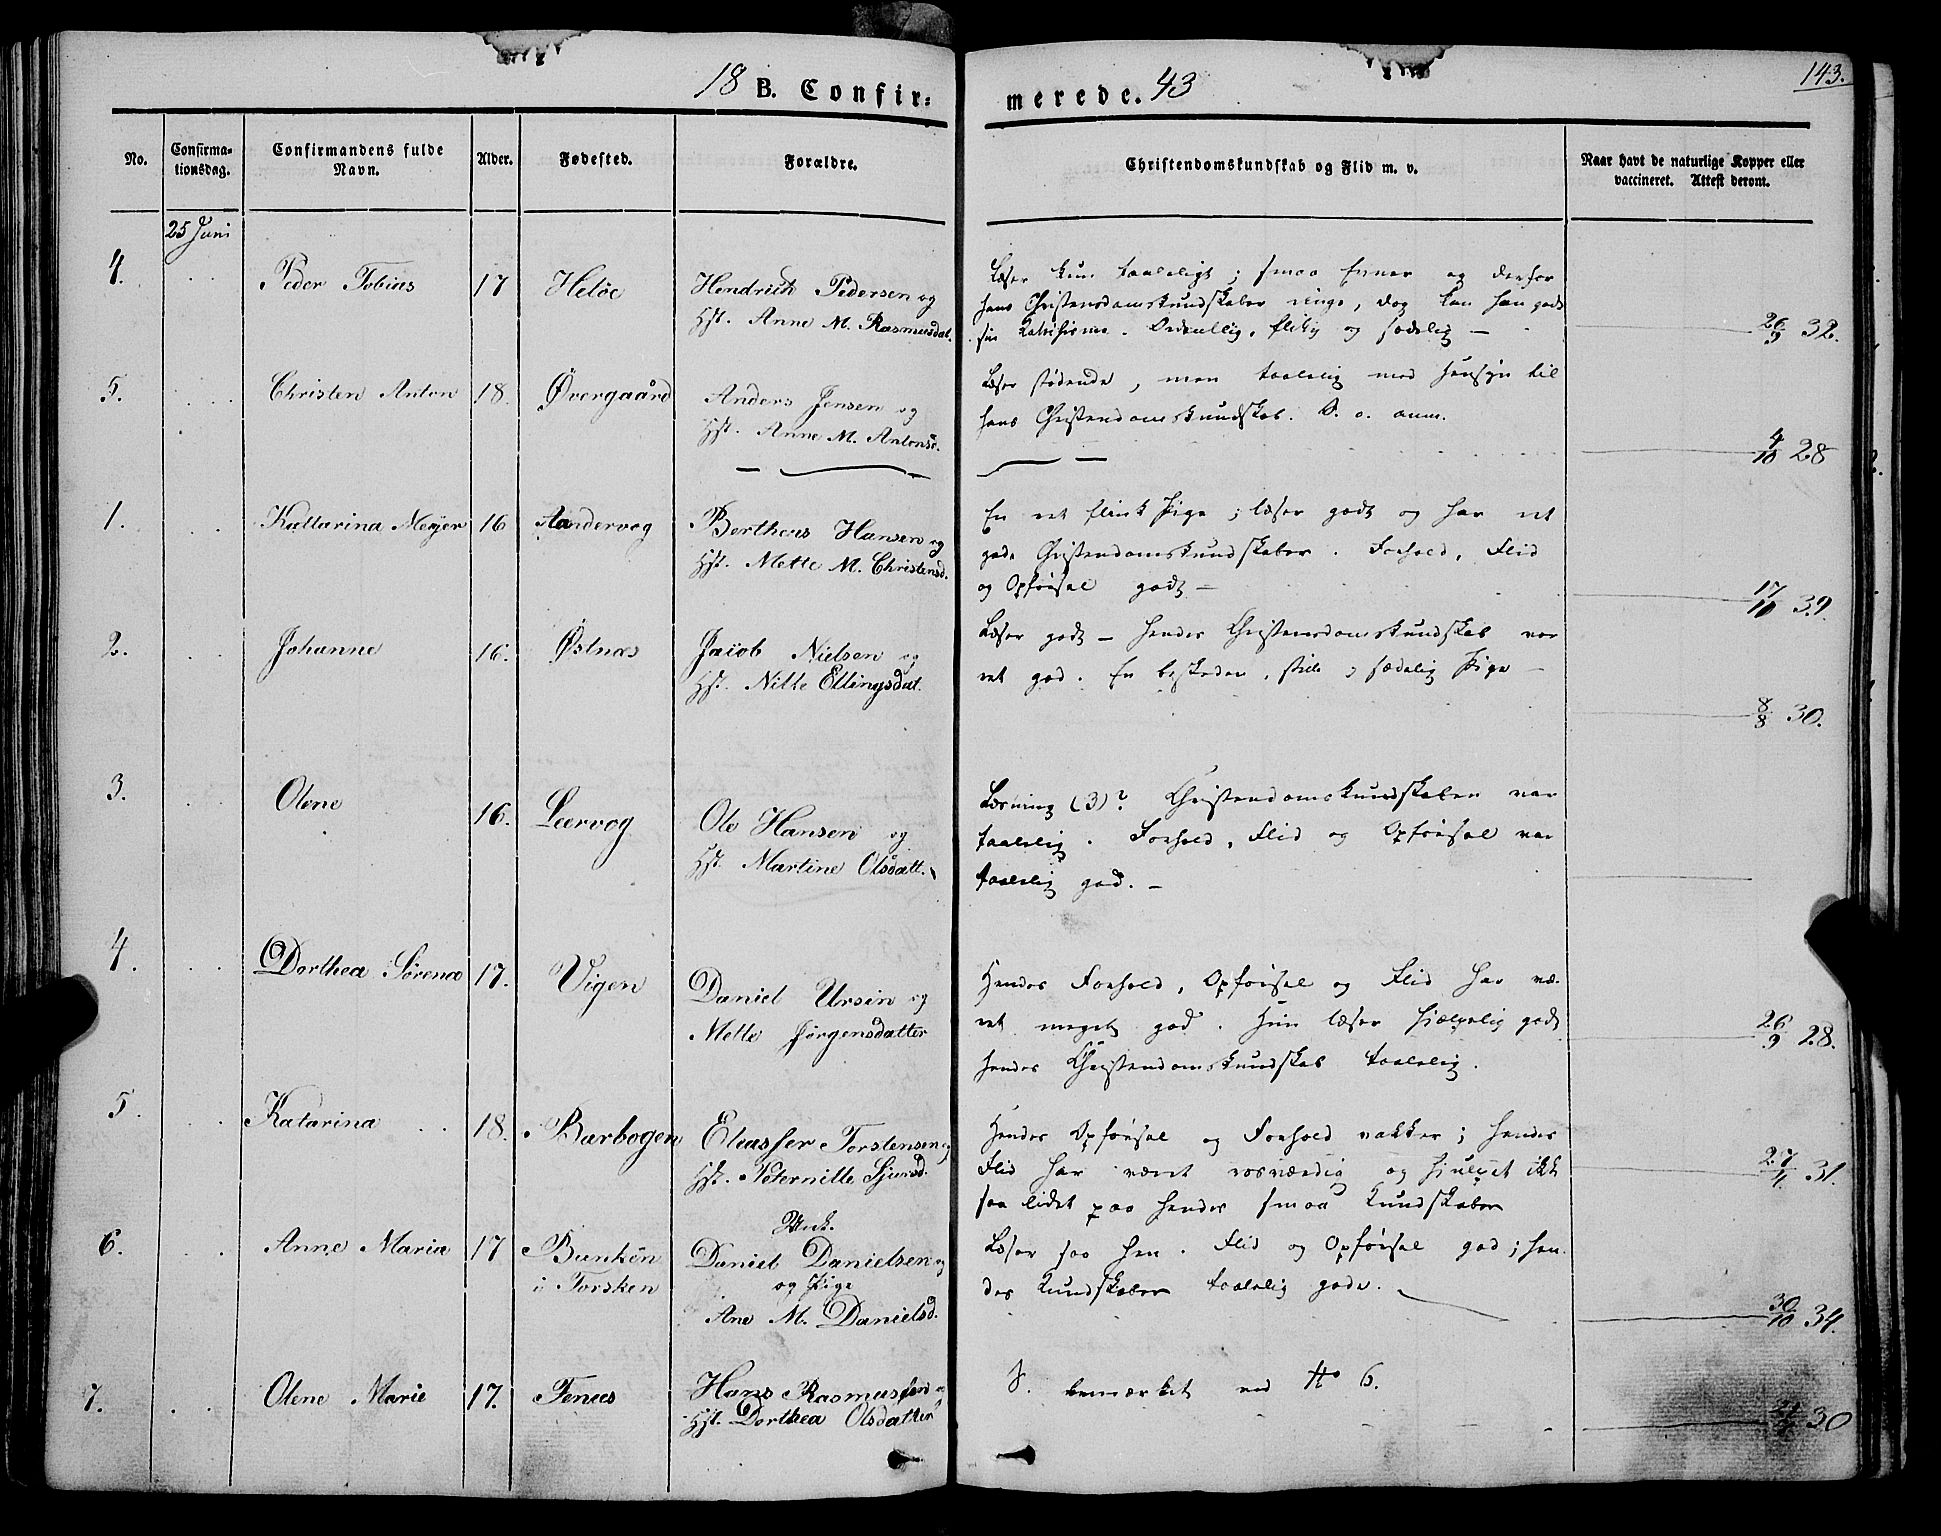 18 B. Confir= merede. 43
143.
No.
Confirma-
tionsdag.
Confirmandens fulde
Navn.
Alder.
Fødested.
Forældre.
Christendomskundskab og Flid m. v.
Naar havt de naturlige Kopper eller
vaccineret. Attest derom.
25 Juni
4. Peder Tobias 17 Heløe
Hendrich Pedersen og
Hst. Anne M. Rasmusdat.
Læser kun taaleligt; smaa Evner og derfor
hans Christendomskundskaber ringe, dog kan han godt
sin Katechisme. Ordentlig, flittig og sædelig —
26/9 32.
5. Christen Anton 18. Øvergaard
Anders Jensen og
Hst. Anne M. Antonsd.
Læser stødende, men taalelig med Hensyn til
hans Christendomskundskab. S. o. anm.
4/10 28
1. Kattarina Meyer 16 Aandervog
Bertheus Hansen og
Hst. Mette M. Christensd.
En ret flink Pige; læser godt og har ret
gode Christendomskundskaber. Forhold, Flid
og Opførsel godt —
17/10 39.
2. Johanne 16. Østnæs
Jacob Nielsen og
Hst. Nille Ellingsdat.
Læser godt — Hendes Christendomskundskab var
ret god. En beskeden, stille og sædelig Pige —
8/8 30.
3. Olene 16. Leervog
Ole Hansen og
Hst. Martine Olsdatt.
Læsning (3)? Christendomskundskaben var
taalelig. Forhold, Flid og Opførsel var
taalelig god. —
4. Dorthea Sørena 17. Vigen
Daniel Ursin og
Mette Jørgensdatter
Hendes Forhold, Opførsel og Flid har væ-
ret meget god. Hun læser hjælpelig godt
hendes Christendomskundskab taalelig.
26/9 28.
5. Katarina 18. Barbogen
Eliasser Torstensen og
Hst. Peternille Sjursd.
Hendes Opførsel og Forhold vakker; hendes
Flid har været rosværdig og hjulpet ikke
saa lidet paa hendes smaa Kundskaber
27/1 31.
6. Anne Maria 17 Bunkén
i Torsken
Unk.
Daniel Danielsen og
og Pige
Ane M. Danielsd.
Læser saa hen. Flid og Opførsel god; hen-
des Kundskaber taalelig gode.
30/10 34.
7. Olene Marie 17. Fenes
Hans Rasmussen og
Hst. Dorthea Olsdatter
S. bemærket ved No 6.
30